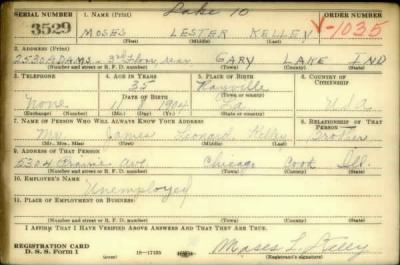 Lake 10
SERIAL NUMBER 1. NAME (Print) ORDER NUMBER
3529 MOSES LESTER KELLEY V-1035
(First) (Middle) (Last)
2. ADDRESS (Print)
2530 ADAMS - 3rd Floor rear GARY LAKE IND
(Number and street or R. F. D. number) (Town) (County) (State)
3. TELEPHONE 4. AGE IN YEARS 5. PLACE OF BIRTH 6. COUNTRY OF CITIZENSHIP
35 Rayville
DATE OF BIRTH
None 11 1904 La U.S.A
(Exchange) (Number) (Mo.) (Day) (Yr.) (State or country)
7. NAME OF PERSON WHO WILL ALWAYS KNOW YOUR ADDRESS 8. RELATIONSHIP OF THAT PERSON
Mr. James Leonard Kelley Brother
(Mr., Mrs., Miss) (First) (Middle) (Last)
9. ADDRESS OF THAT PERSON
5304 Prairie Ave Chicago Cook Ill.
(Number and street or R. F. D. number) (Town) (County) (State)
10. EMPLOYER'S NAME
Unemployed
11. PLACE OF EMPLOYMENT OR BUSINESS
(Number and street or R. F. D. number) (Town) (County) (State)
I AFFIRM THAT I HAVE VERIFIED ABOVE ANSWERS AND THAT THEY ARE TRUE.
REGISTRATION CARD
D. S. S. Form 1 16—17105 Moses L. Kelley
(Registrant's signature)